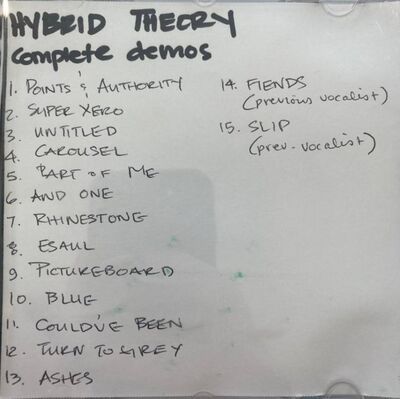 HYBRID THEORY
Complete demos
1. POINTS & AUTHORITY
2. SUPER XERO
3. UNTITLED
4. CAROUSEL
5. PART OF ME
6. AND ONE
7. RHINESTONE
8. ESAUL
9. PICTUREBOARD
10. BLUE
11. COULD'VE BEEN
12. TURN TO GREY
13. ASHES
14. FIENDS
(previous vocalist)
15. SLIP
(prev. vocalist)